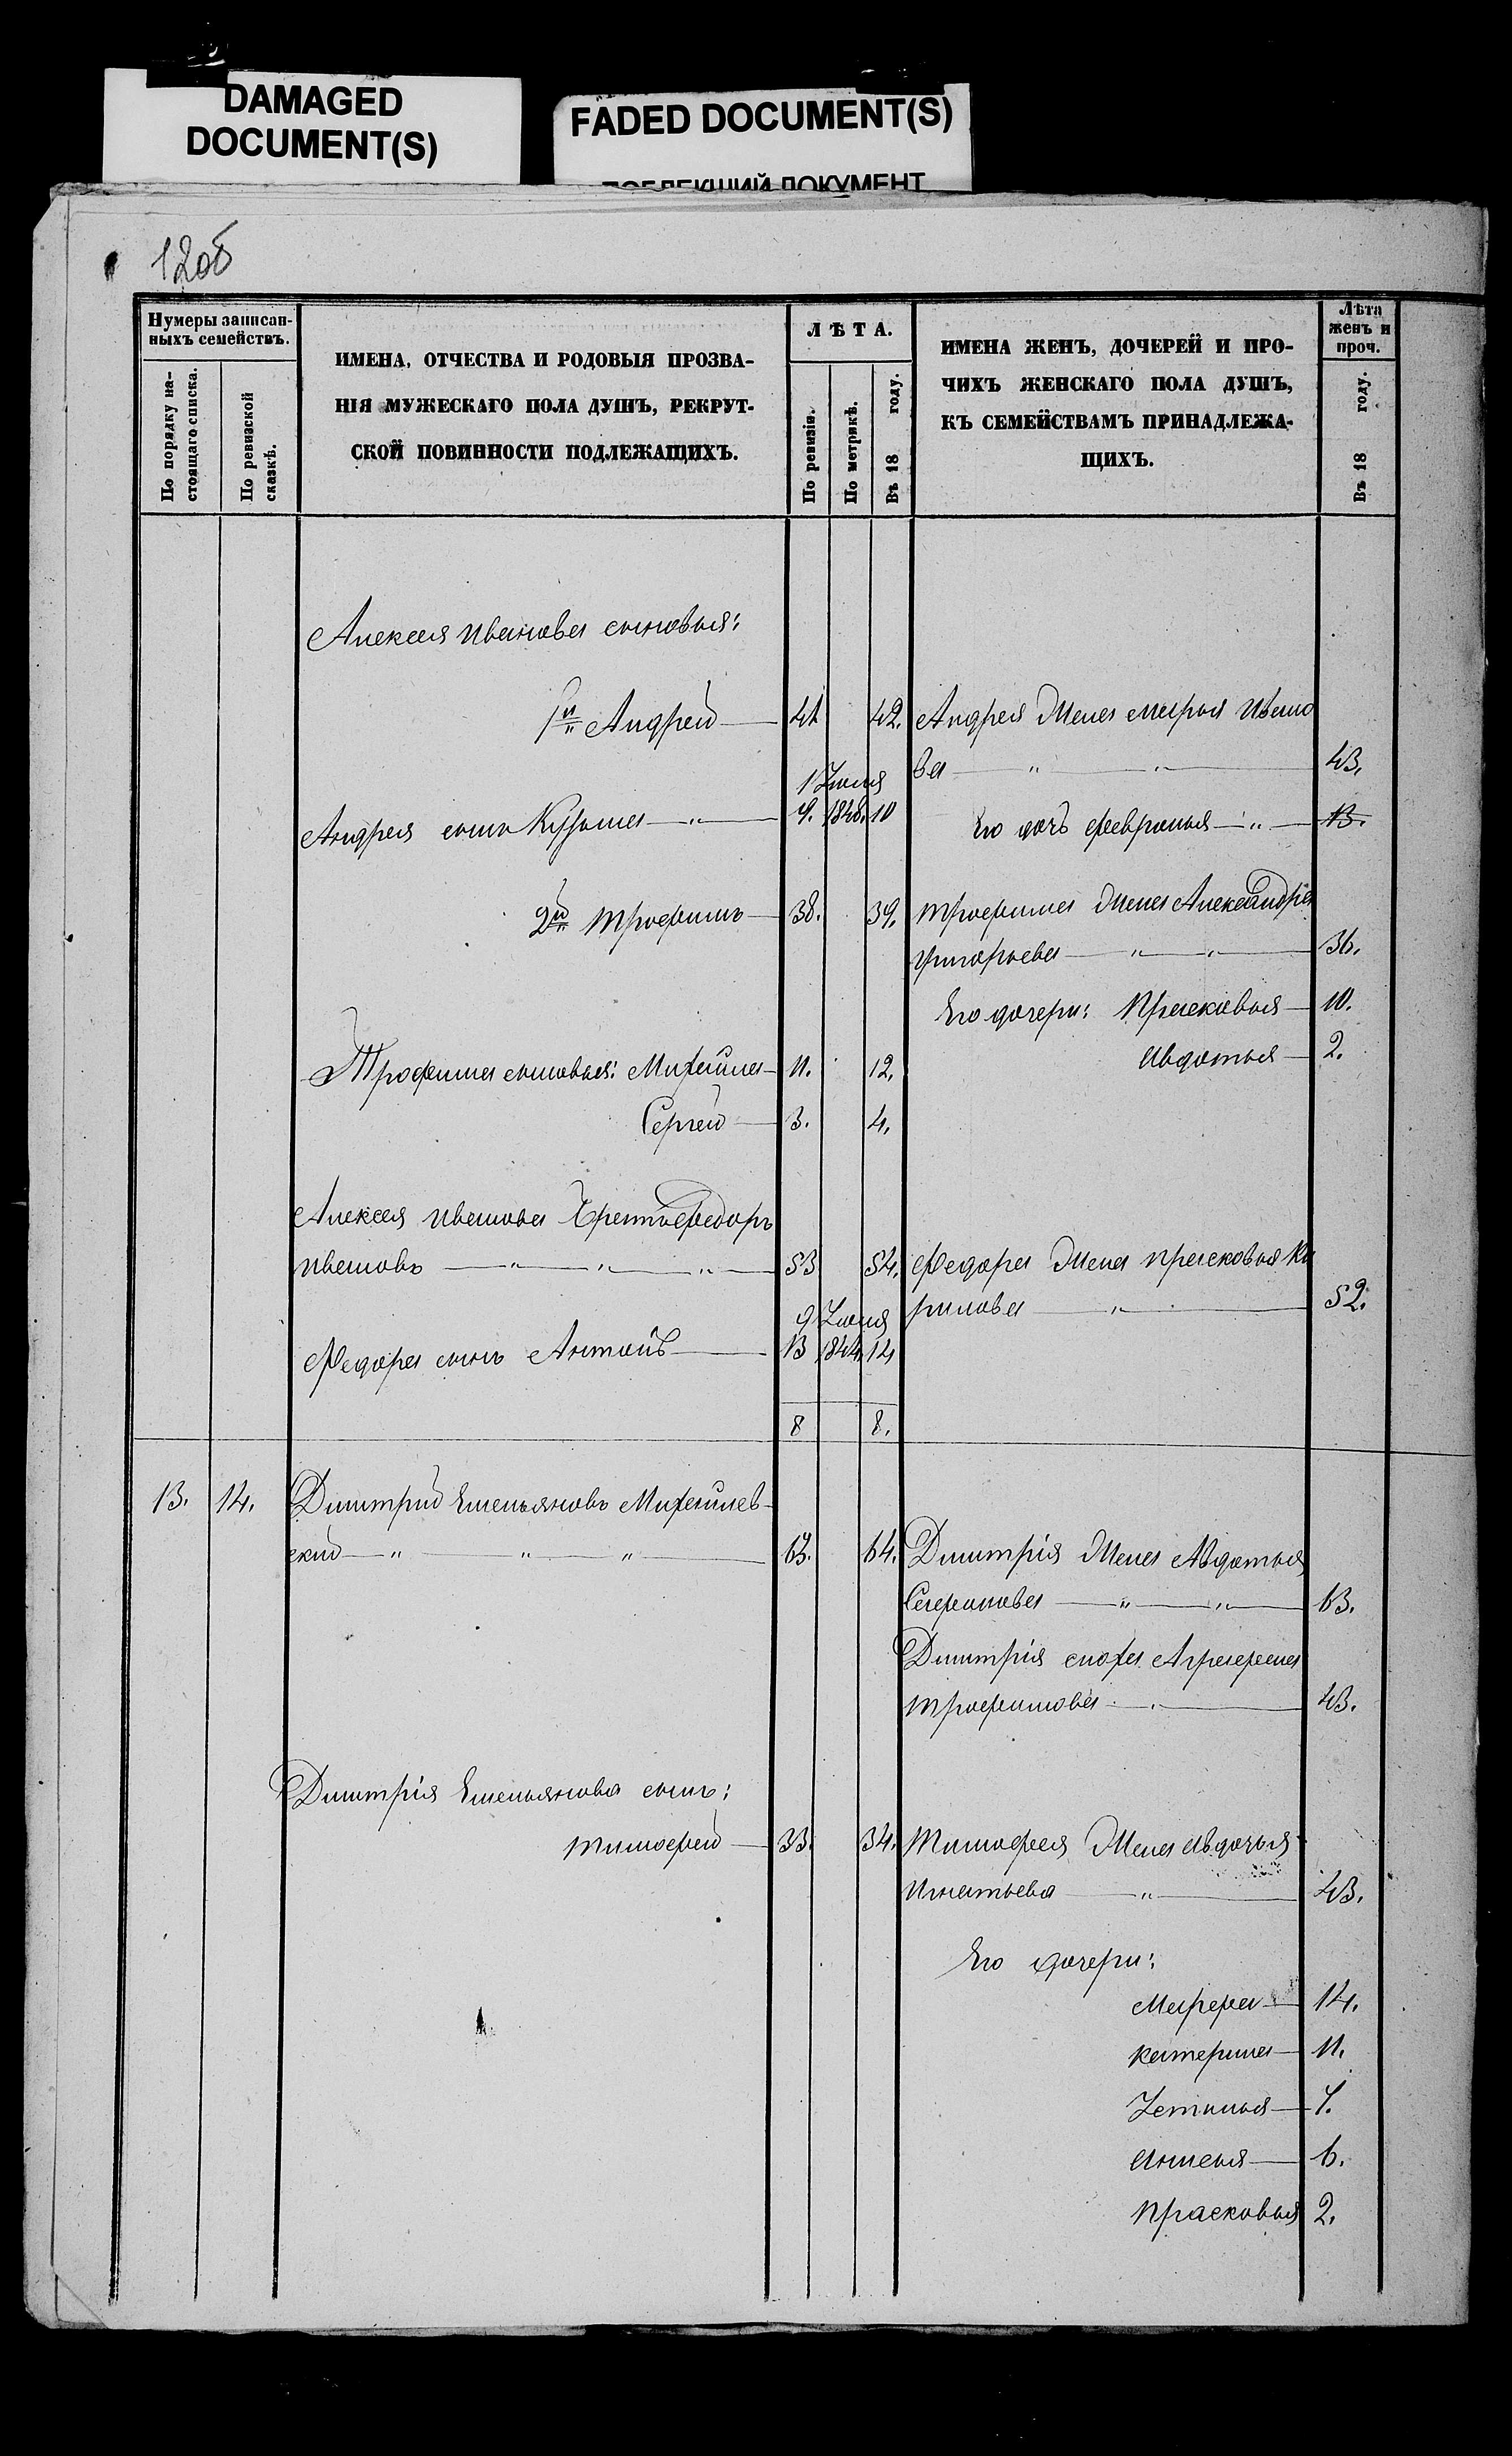 DAMAGED
DOCUMENT(S)
FADED DOCUMENT(S)
ПОБЛЕКШИЙ ДОКУМЕНТ
120б
Нумеры записан-
ныхъ семействъ.
По порядку на-
стоящаго списка.
По ревизской
сказкѣ.
ИМЕНА, ОТЧЕСТВА И РОДОВЫЯ ПРОЗВА-
НІЯ МУЖЕСКАГО ПОЛА ДУШЪ, РЕКРУТ-
СКОЙ ПОВИННОСТИ ПОДЛЕЖАЩИХЪ.
ЛѢТА.
По ревизіи.
По метрикѣ.
Въ 18 году.
ИМЕНА ЖЕНЪ, ДОЧЕРЕЙ И ПРО-
ЧИХЪ ЖЕНСКАГО ПОЛА ДУШЪ,
КЪ СЕМЕЙСТВАМЪ ПРИНАДЛЕЖА-
ЩИХЪ.
Лѣта
женъ и
проч.
Въ 18 году.
Алексея Иванова сыновья:
1й Андрей — 41 42. Андрея Жена Марья Ивано
ва — " — " — 43.
1 Июля
Андрея сынъ Кузьма — " — 9. 1848. 10 Его дочь Февронья — " — 13.
2й Трофимъ — 38. 39. Трофима Жена Александра
Григорьева — " — " — 36.
Его дочери: Прасковья — 10.
Авдотья — 2.
Трофима сыновья: Михайла — 11. 12.
Сергей — 3. 4.
Алексея Иванова братъ Федоръ
Ивановъ — " — " — " — 53 54. Федора Жена Прасковья Ки
рилова — " — 52.
9 Июля
Федора сынъ Антонъ — 13 1844. 14
8 8.
13. 14. Димитрий Емельяновъ Михайлев-
ский — " — " — " — 63. 64. Димитрія Жена Авдотья
Сафронова — " — " — 63.
Димитрія сноха Аграфена
Трофимова — " — 43.
Димитрія Емельянова сынъ:
Тимофей — 33. 34. Тимофея Жена Авдотья
Игнатьева — " — 43.
Его дочери:
Марфа — 14.
Катерина — 11.
Устинья — 7.
Анисья — 6.
Прасковья 2.